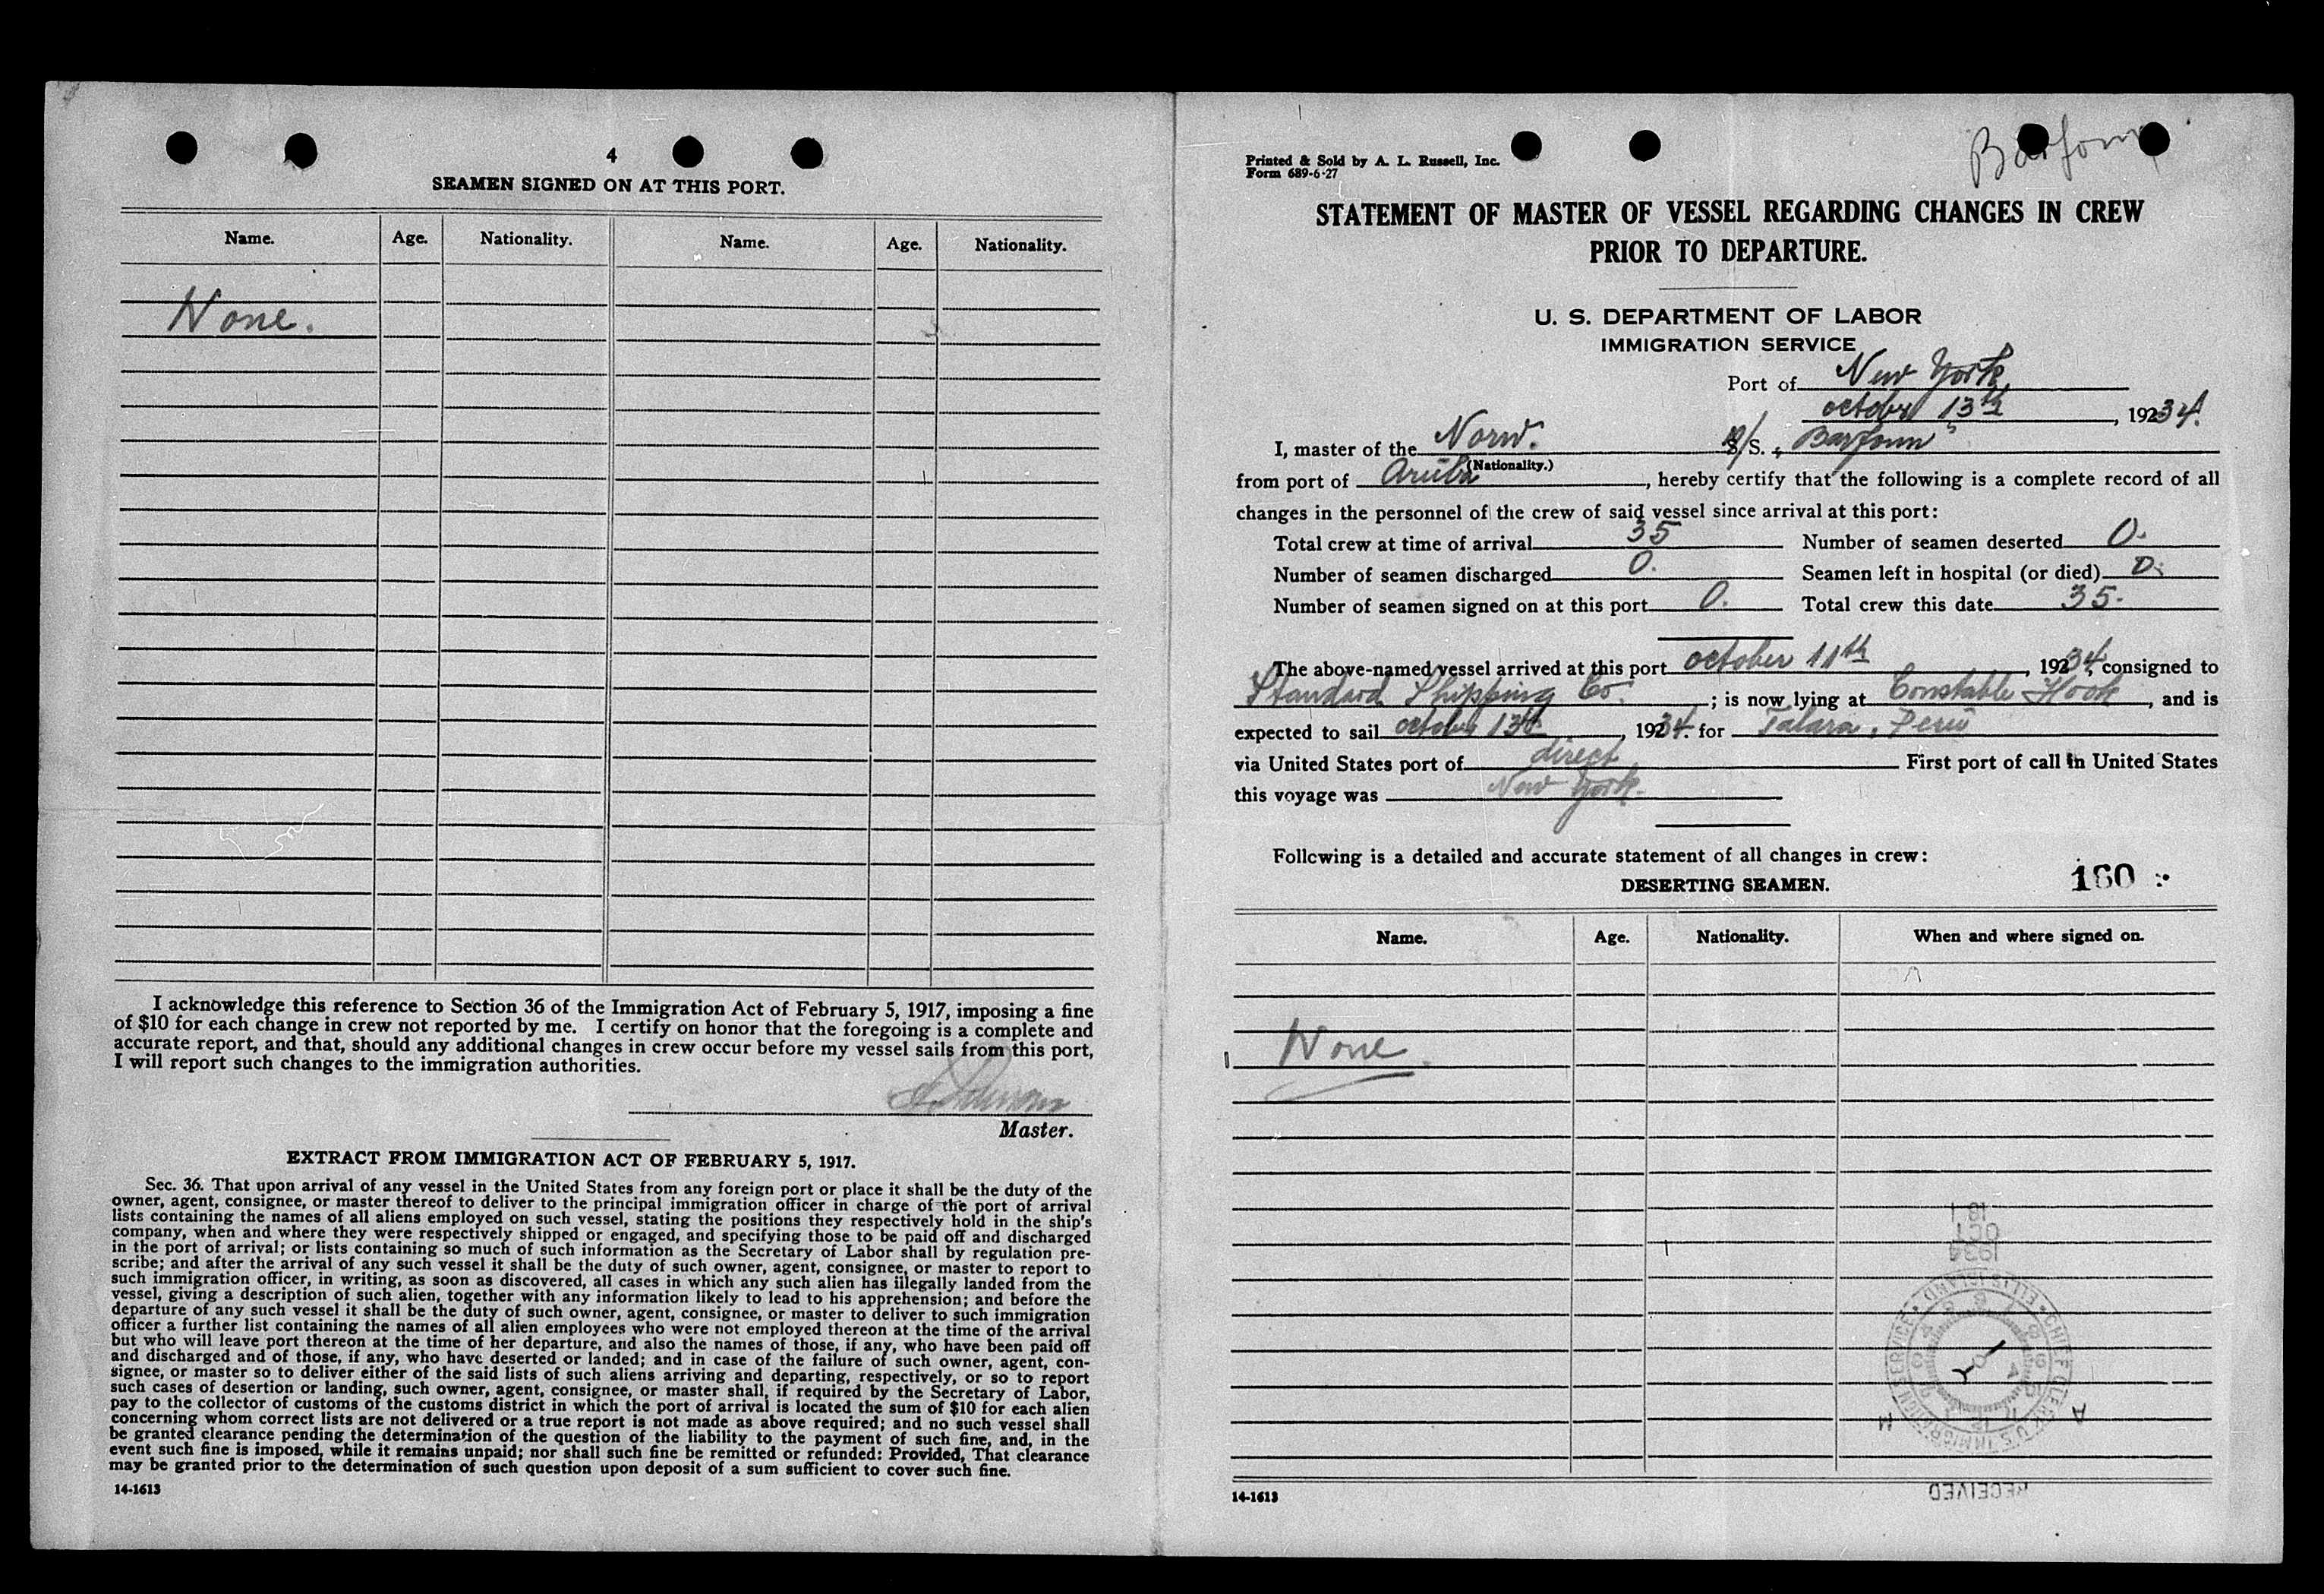 4
SEAMEN SIGNED ON AT THIS PORT.
Name. Age. Nationality. Name. Age. Nationality.
None.
I acknowledge this reference to Section 36 of the Immigration Act of February 5, 1917, imposing a fine
of $10 for each change in crew not reported by me. I certify on honor that the foregoing is a complete and
accurate report, and that, should any additional changes in crew occur before my vessel sails from this port,
I will report such changes to the immigration authorities.
Master.
EXTRACT FROM IMMIGRATION ACT OF FEBRUARY 5, 1917.
Sec. 36. That upon arrival of any vessel in the United States from any foreign port or place it shall be the duty of the
owner, agent, consignee, or master thereof to deliver to the principal immigration officer in charge of the port of arrival
lists containing the names of all aliens employed on such vessel, stating the positions they respectively hold in the ship's
company, when and where they were respectively shipped or engaged, and specifying those to be paid off and discharged
in the port of arrival; or lists containing so much of such information as the Secretary of Labor shall by regulation pre-
scribe; and after the arrival of any such vessel it shall be the duty of such owner, agent, consignee, or master to report to
such immigration officer, in writing, as soon as discovered, all cases in which any such alien has illegally landed from the
vessel, giving a description of such alien, together with any information likely to lead to his apprehension; and before the
departure of any such vessel it shall be the duty of such owner, agent, consignee, or master to deliver to such immigration
officer a further list containing the names of all alien employees who were not employed thereon at the time of the arrival
but who will leave port thereon at the time of her departure, and also the names of those, if any, who have been paid off
and discharged and of those, if any, who have deserted or landed; and in case of the failure of such owner, agent, con-
signee, or master so to deliver either of the said lists of such aliens arriving and departing, respectively, or so to report
such cases of desertion or landing, such owner, agent, consignee, or master shall, if required by the Secretary of Labor,
pay to the collector of customs of the customs district in which the port of arrival is located the sum of $10 for each alien
concerning whom correct lists are not delivered or a true report is not made as above required; and no such vessel shall
be granted clearance pending the determination of the question of the liability to the payment of such fine, and, in the
event such fine is imposed, while it remains unpaid; nor shall such fine be remitted or refunded: Provided, That clearance
may be granted prior to the determination of such question upon deposit of a sum sufficient to cover such fine.
14-1613
Barfonn
Printed & Sold by A. L. Russell, Inc.
Form 689-6-27
STATEMENT OF MASTER OF VESSEL REGARDING CHANGES IN CREW
PRIOR TO DEPARTURE.
U. S. DEPARTMENT OF LABOR
IMMIGRATION SERVICE
Port of New York
october 13th, 19234.
I, master of the Norw. S/S. "Barfonn"
(Nationality.)
from port of Aruba, hereby certify that the following is a complete record of all
changes in the personnel of the crew of said vessel since arrival at this port:
Total crew at time of arrival 35 Number of seamen deserted 0.
Number of seamen discharged 0. Seamen left in hospital (or died) 0.
Number of seamen signed on at this port 0. Total crew this date 35.
The above-named vessel arrived at this port october 11th, 19234, consigned to
Standard Shipping Co.; is now lying at Constable Hook, and is
expected to sail october 13th, 19234. for Talara, Peru
via United States port of direct First port of call in United States
this voyage was New York.
Following is a detailed and accurate statement of all changes in crew:
DESERTING SEAMEN.
160
Name. Age. Nationality. When and where signed on.
None
13 1
OCT
1934
CHIEF CLERK U.S. IMMIGRATION SERVICE • ELLIS ISLAND •
A M
RECEIVED
14-1613